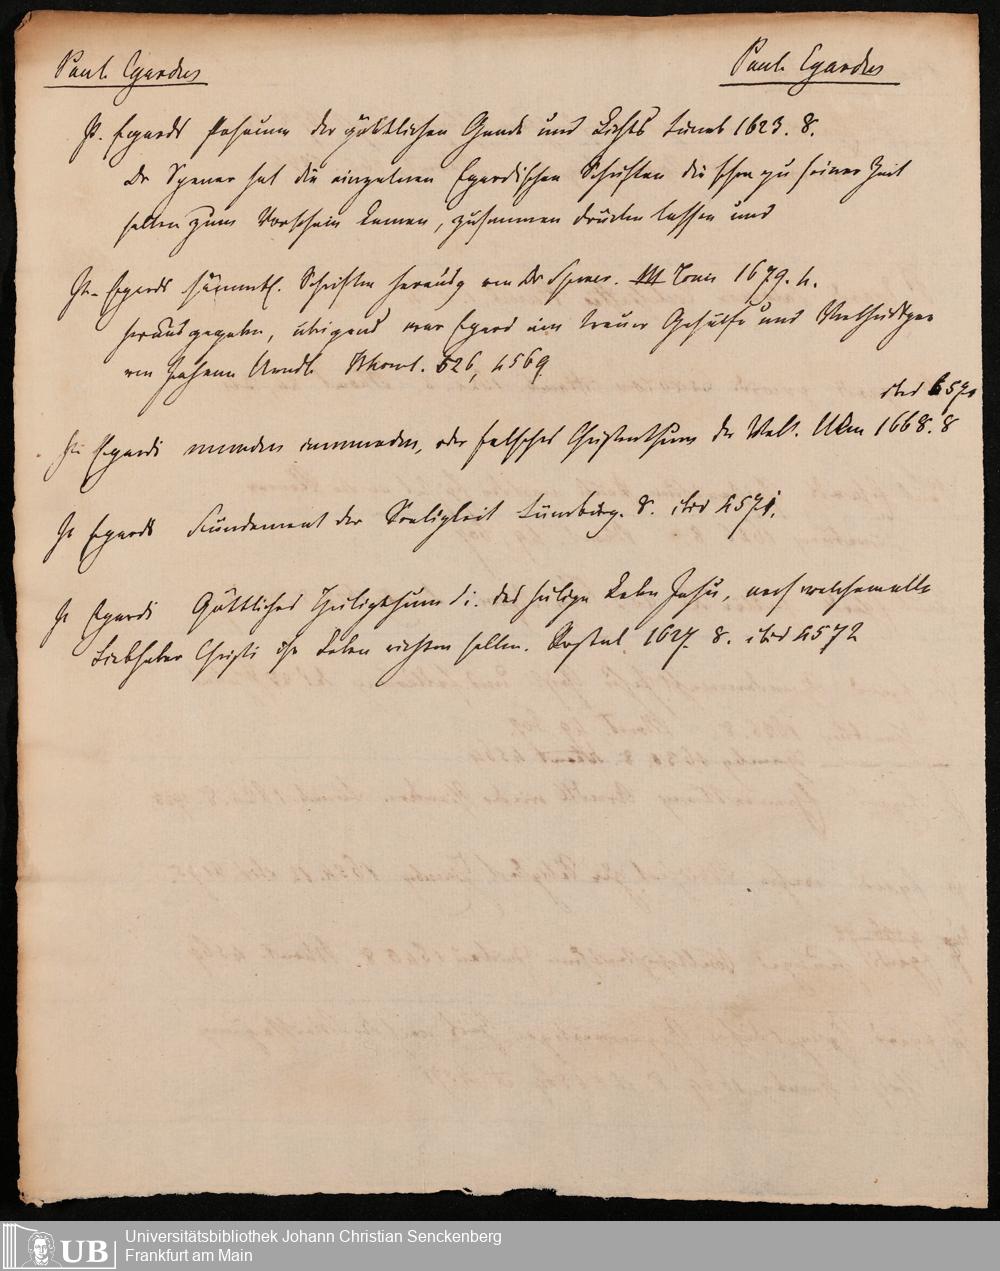 Paul. Egardus
Paul. Egardus
P. Egardi Posaune der göttlichen Gnade und Lichts Lüneb 1623. 8.
Dr Spener hat die einzelnen Egardischen Schriften die schon zu seiner Zeit
selten zum Vorschein kamen, zusammen drucken lassen und
P. Egardi sämmtl. Schriften herausg von Dr Spener. Tomi 1679. 4.
herausgegeben, übrigens war Egard ein treuer Gehülfe und Vertheidiger
von Johann Arndt. 526, 4569
ibid 4570
P. Egardi mundus immundus, oder falsches Christenthum der Welt. 1668. 8
P. Egardi Fundament der Seeligkeit Lüneburg. 8. ibid 4571.
P. Egardi Göttliches Heiligthum d. i. das heilige Leben Jesu, nach welchem alle
Liebhaber Christi ihr Leben richten sollen. Rostock 1627. 8. ibid 4572
Universitätsbibliothek Johann Christian Senckenberg
Frankfurt am Main
UB